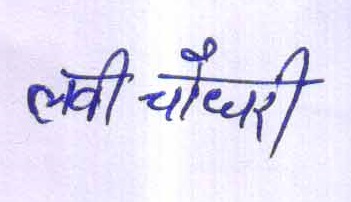 लवी चौधरी